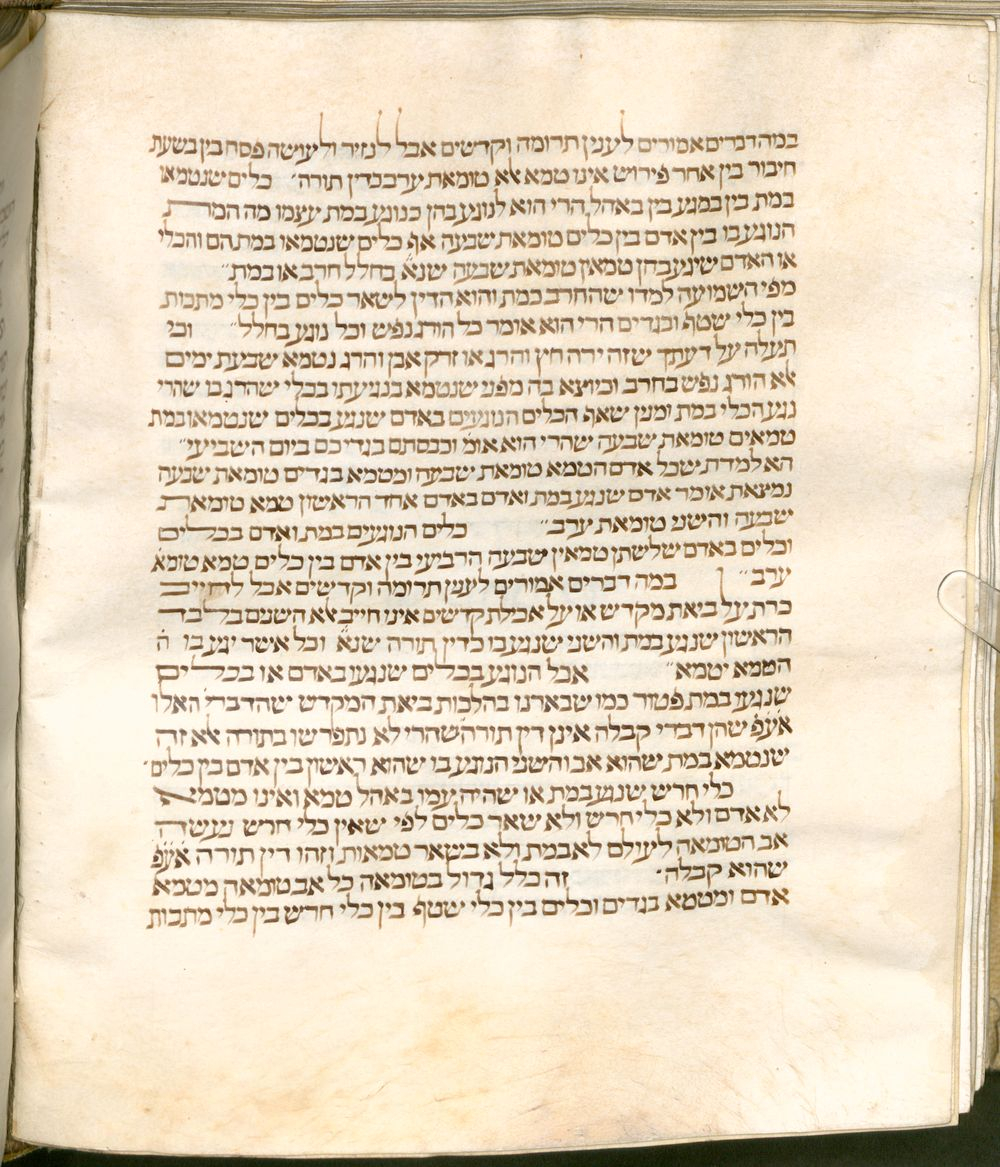 במה דברים אמורים לענין תרומה וקדשים אבל לנזיר ולעושה פסח בין בשעת
חיבור בין אחר פירוש אינו טמא אלא טומאת ערב כדין תורה׳ כלים שנטמאו
במת בין במגע בין באהל הרי הוא לנוגע בהן כנוגע במת עצמו מה המת
הנוגע בו בין אדם בין כלים טומאת שבעה אף כלים שנטמאו במת הם והכלי
או האדם שיגע בהן טמאין טומאת שבעה שנא׳ בחלל חרב או במת״
מפי השמועה למדו שהחרב כמת והוא הדין לשאר כלים בין כלי מתכות
בין כלי שטף ובגדים הרי הוא אומר כל הורג נפש וכל נוגע בחלל״ וכי
תעלה על דעתך שזה ירה חץ והרג או זרק אבן והרג נטמא שבעת ימים
אלא הורג נפש בחרב וכיוצא בה מפני שנטמא בנגיעתו בכלי שהרג בו שהרי
נגע הכלי במת ומנין שאף הכלים הנוגעים באדם שנגע בכלים שנטמאו במת
טמאים טומאת שבעה שהרי הוא אומ׳ וכבסתם בגדיכם ביום השביעי״
הא למדת שכל אדם הטמא טומאת שבעה ומטמא בגדים טומאת שבעה
נמצאת אומר אדם שנגע במת ואדם באדם אחד הראשון טמא טומאת
שבעה והשני טומאת ערב״ כלים הנוגעים במת ואדם בכלים
וכלים באדם שלשתן טמאין שבעה הרביעי בין אדם בין כלים טמא טומא׳
ערב״ במה דברים אמורים לענין תרומה וקדשים אבל לחייב
כרת על ביאת מקדש או על אכילת קדשים אינו חייב אלא השנים בלבד
הראשון שנגע במת והשני שנגע בו כדין תורה שנא׳ וכל אשר יגע בו ה
הטמא יטמא״ אבל הנוגע בכלים שנגעו באדם או בכלים
שנגעו במת פטור כמו שבארנו בהלכות ביאת המקדש שהדברי׳ האלו
אע״פ שהן דברי קבלה אינן דין תורה שהרי לא נתפרשו בתורה אלא זה
שנטמא במת שהוא אב והשני הנוגע בו שהוא ראשון בין אדם בין כלים׳
כלי חרש שנגע במת או שהיה עמו באהל טמא ואינו מטמא
לא אדם ולא כלי חרש ולא שאר כלים לפי שאין כלי חרש נעשה
אב הטומאה לעולם לא במת ולא בשאר טמאות וזהו דין תורה אע״פ
שהוא קבלה׳ זה כלל גדול בטומאה כל אב טומאה מטמא
אדם ומטמא בגדים וכלים בין כלי שטף בין כלי חרש בין כלי מתכות